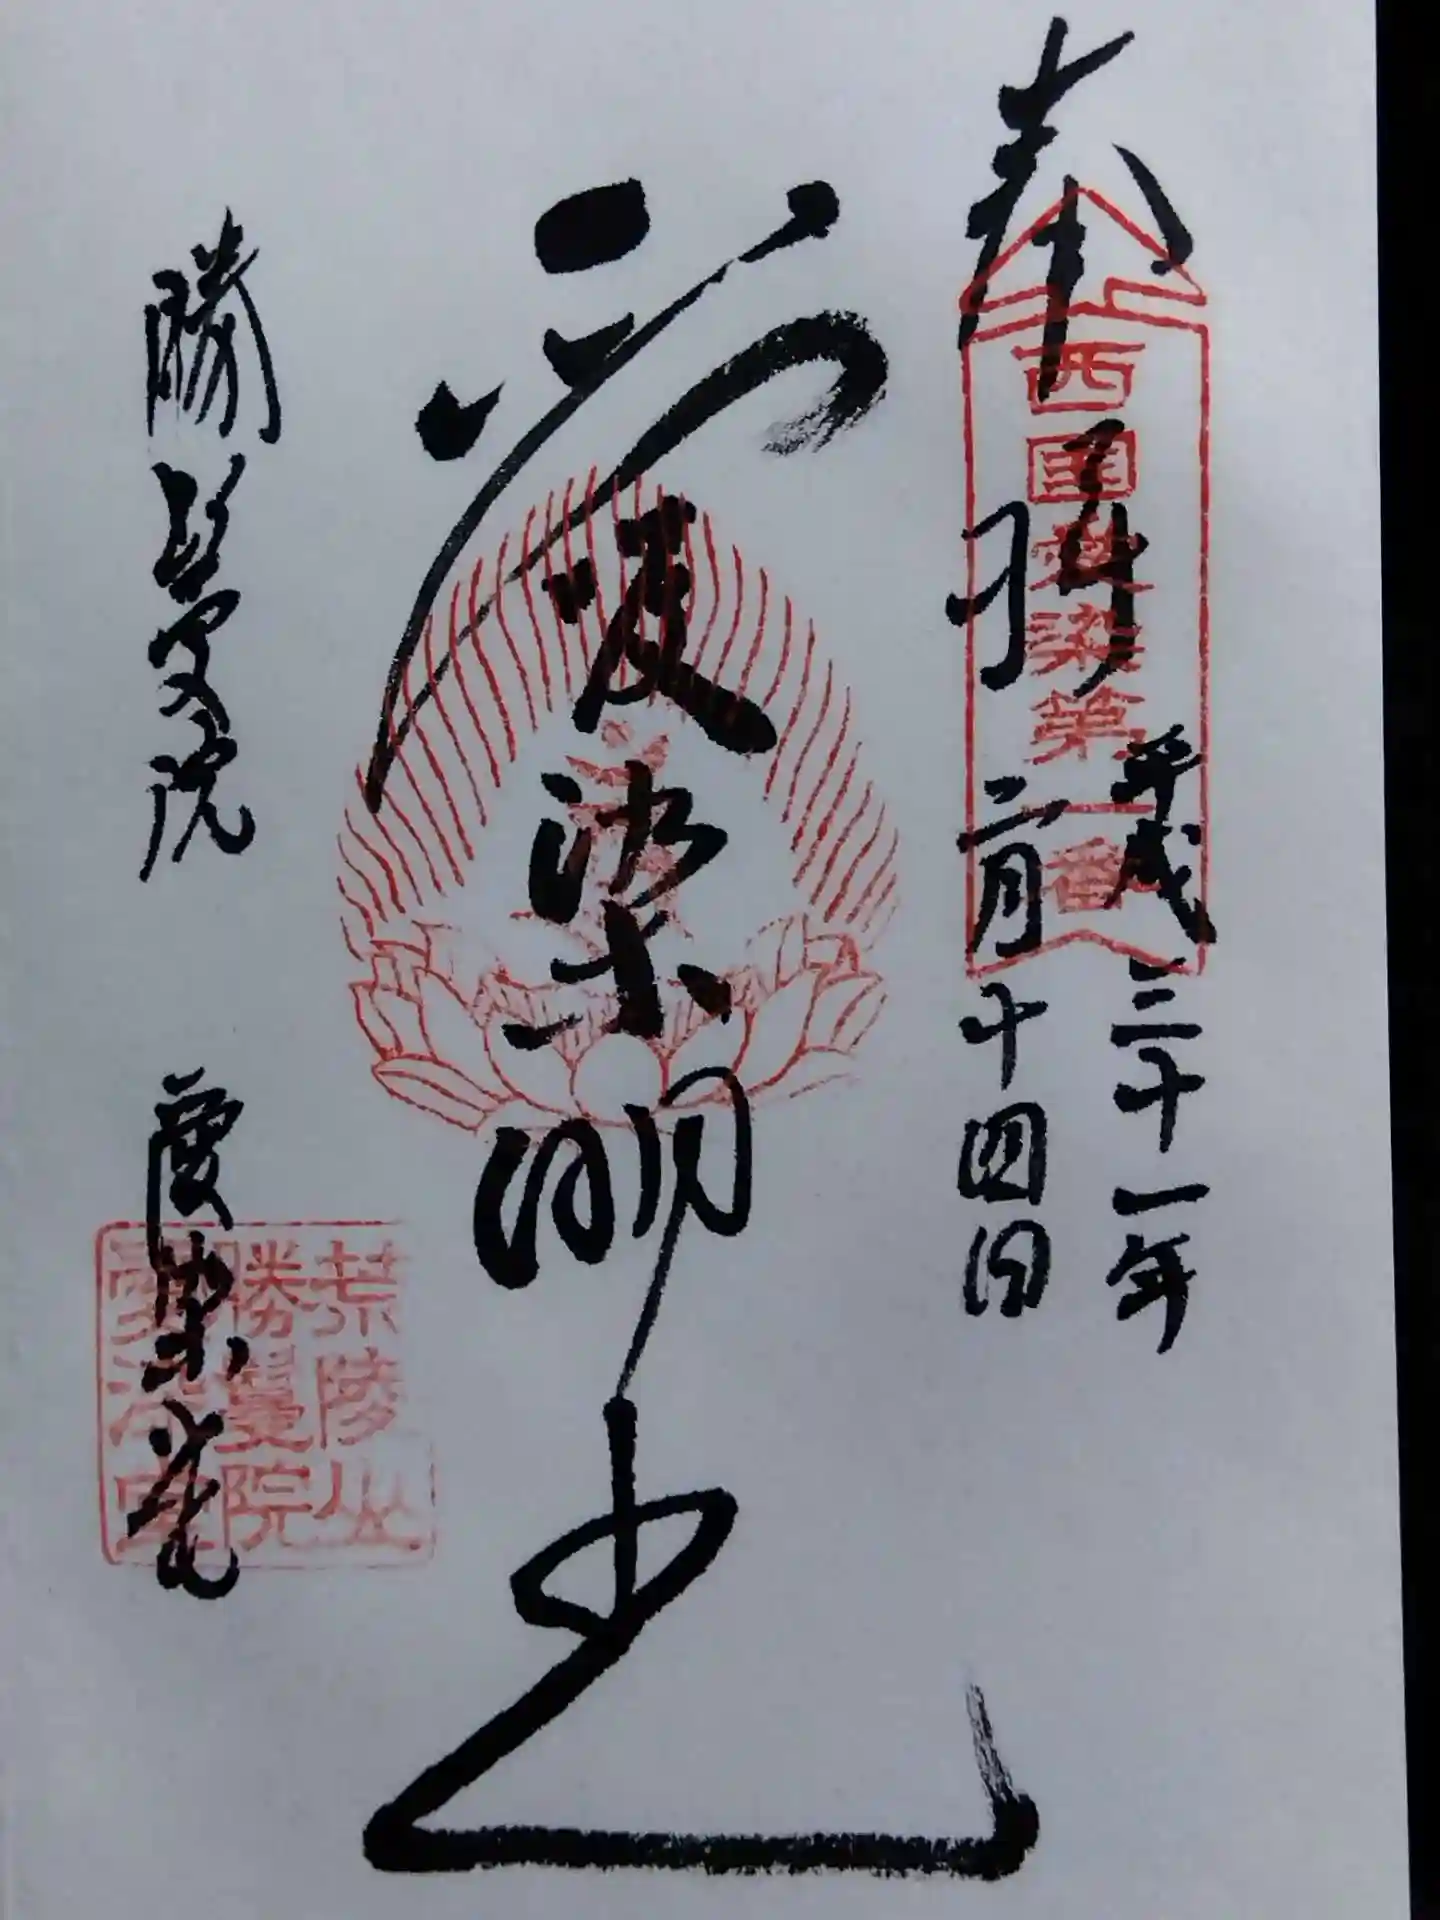 奉拝
西国愛染第一番
平成三十一年
二月十四日
愛染明王
勝鬘院 愛染堂
荒陵山
勝鬘院
愛染堂